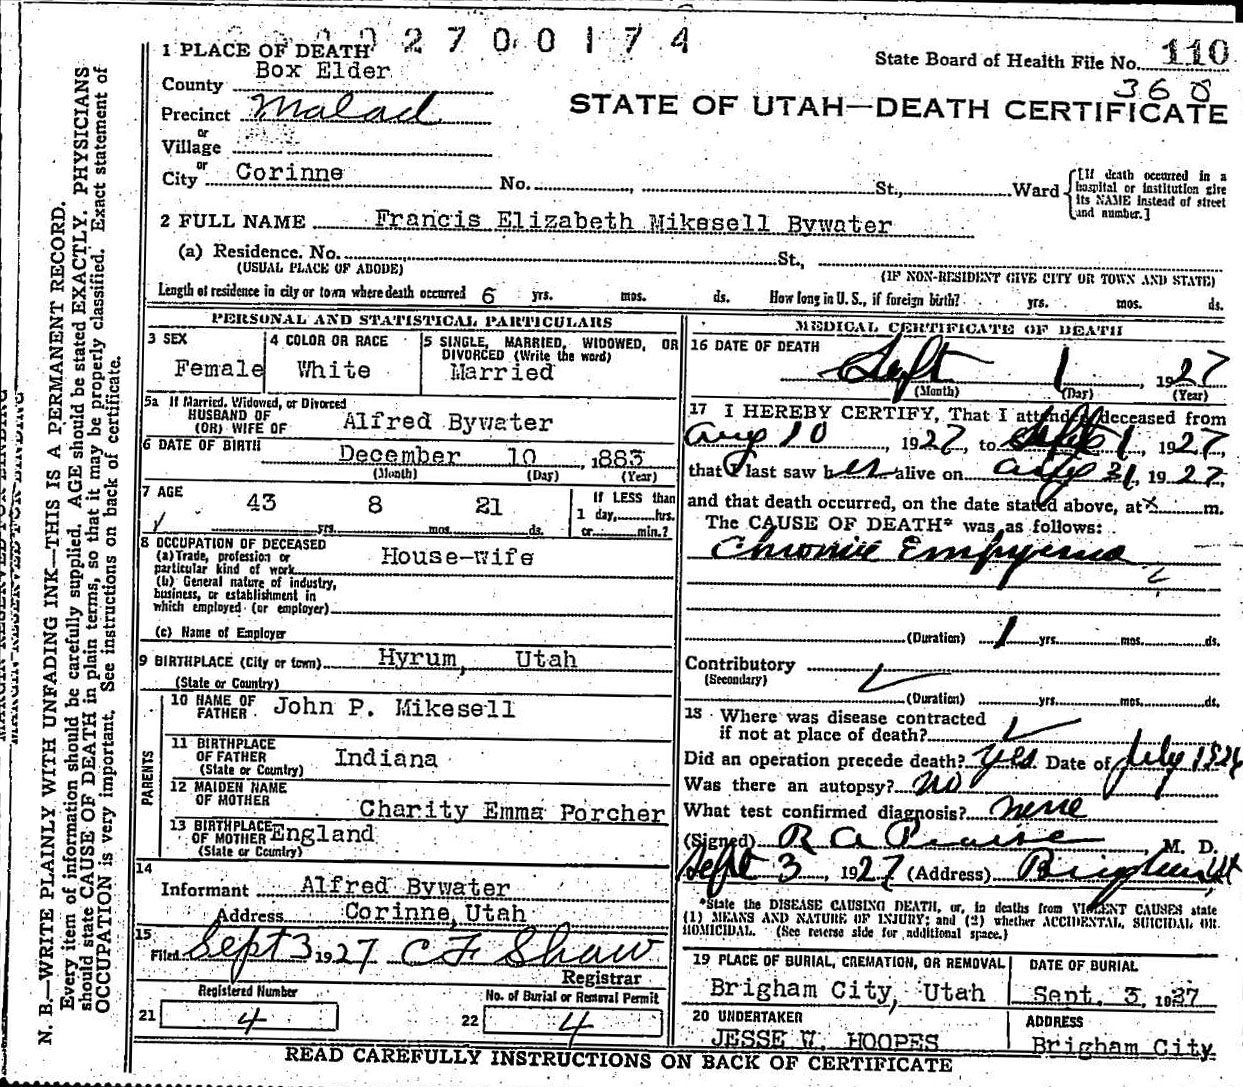 0 0 2 7 0 0 1 7 4
State Board of Health File No. 110
360
STATE OF UTAH—DEATH CERTIFICATE
1 PLACE OF DEATH
County Box Elder
Precinct Malad
or
Village
or
City Corinne No. , St., Ward
[If death occurred in a hospital or institution give its NAME instead of street and number.]
2 FULL NAME Francis Elizabeth Mikesell Bywater
(a) Residence. No. St.,
(USUAL PLACE OF ABODE) (IF NON-RESIDENT GIVE CITY OR TOWN AND STATE)
Length of residence in city or town where death occurred 6 yrs. mos. ds. How long in U. S., if foreign birth? yrs. mos. ds.
PERSONAL AND STATISTICAL PARTICULARS
3 SEX Female
4 COLOR OR RACE White
5 SINGLE, MARRIED, WIDOWED, OR DIVORCED (Write the word) Married
5a If Married, Widowed, or Divorced
HUSBAND OF
(OR) WIFE OF Alfred Bywater
6 DATE OF BIRTH December 10, 1883
(Month) (Day) (Year)
7 AGE 43 yrs. 8 mos. 21 ds.
If LESS than 1 day, hrs. or min.?
8 OCCUPATION OF DECEASED
(a) Trade, profession or particular kind of work House-wife
(b) General nature of industry, business, or establishment in which employed (or employer)
(c) Name of Employer
9 BIRTHPLACE (City or town) Hyrum, Utah
(State or Country)
PARENTS
10 NAME OF FATHER John P. Mikesell
11 BIRTHPLACE OF FATHER Indiana
(State or Country)
12 MAIDEN NAME OF MOTHER Charity Emma Porcher
13 BIRTHPLACE OF MOTHER England
(State or Country)
14
Informant Alfred Bywater
Address Corinne, Utah
15
Filed Sept 3 1927 C F Shaw
Registrar
Registered Number
21 4
No. of Burial or Removal Permit
22 4
MEDICAL CERTIFICATE OF DEATH
16 DATE OF DEATH
Sept 1, 1927
(Month) (Day) (Year)
17 I HEREBY CERTIFY, That I attended deceased from
Aug 10, 1927, to Sept 1, 1927
that I last saw her alive on Aug 31, 1927,
and that death occurred, on the date stated above, at m.
The CAUSE OF DEATH* was as follows:
Chronic Empyema
(Duration) 1 yrs. mos. ds.
Contributory
(Secondary)
(Duration) yrs. mos. ds.
18 Where was disease contracted
if not at place of death?
Did an operation precede death? yes Date of July 1926
Was there an autopsy? no
What test confirmed diagnosis? none
(Signed) R A Pearse, M. D.
Sept 3, 1927 (Address) Brigham Ut
*State the DISEASE CAUSING DEATH, or, in deaths from VIOLENT CAUSES state
(1) MEANS AND NATURE OF INJURY; and (2) whether ACCIDENTAL, SUICIDAL OR
HOMICIDAL. (See reverse side for additional space.)
19 PLACE OF BURIAL, CREMATION, OR REMOVAL
Brigham City, Utah
DATE OF BURIAL
Sept. 3, 1927
20 UNDERTAKER
JESSE W. HOOPES
ADDRESS
Brigham City
READ CAREFULLY INSTRUCTIONS ON BACK OF CERTIFICATE
MARGIN RESERVED FOR BINDING
N. B.—WRITE PLAINLY WITH UNFADING INK—THIS IS A PERMANENT RECORD.
Every item of information should be carefully supplied. AGE should be stated EXACTLY. PHYSICIANS
should state CAUSE OF DEATH in plain terms, so that it may be properly classified. Exact statement of
OCCUPATION is very important. See instructions on back of certificate.